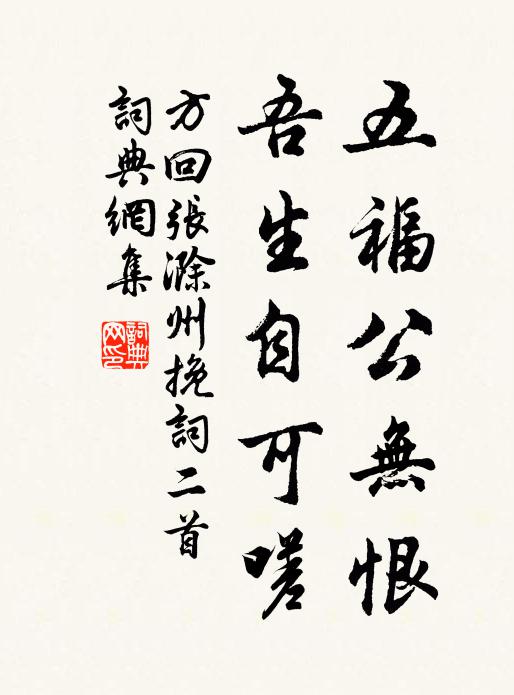 五福公無恨
吾生自可嗟
方回張滁州挽詞二首
詞典網集
詞典网印